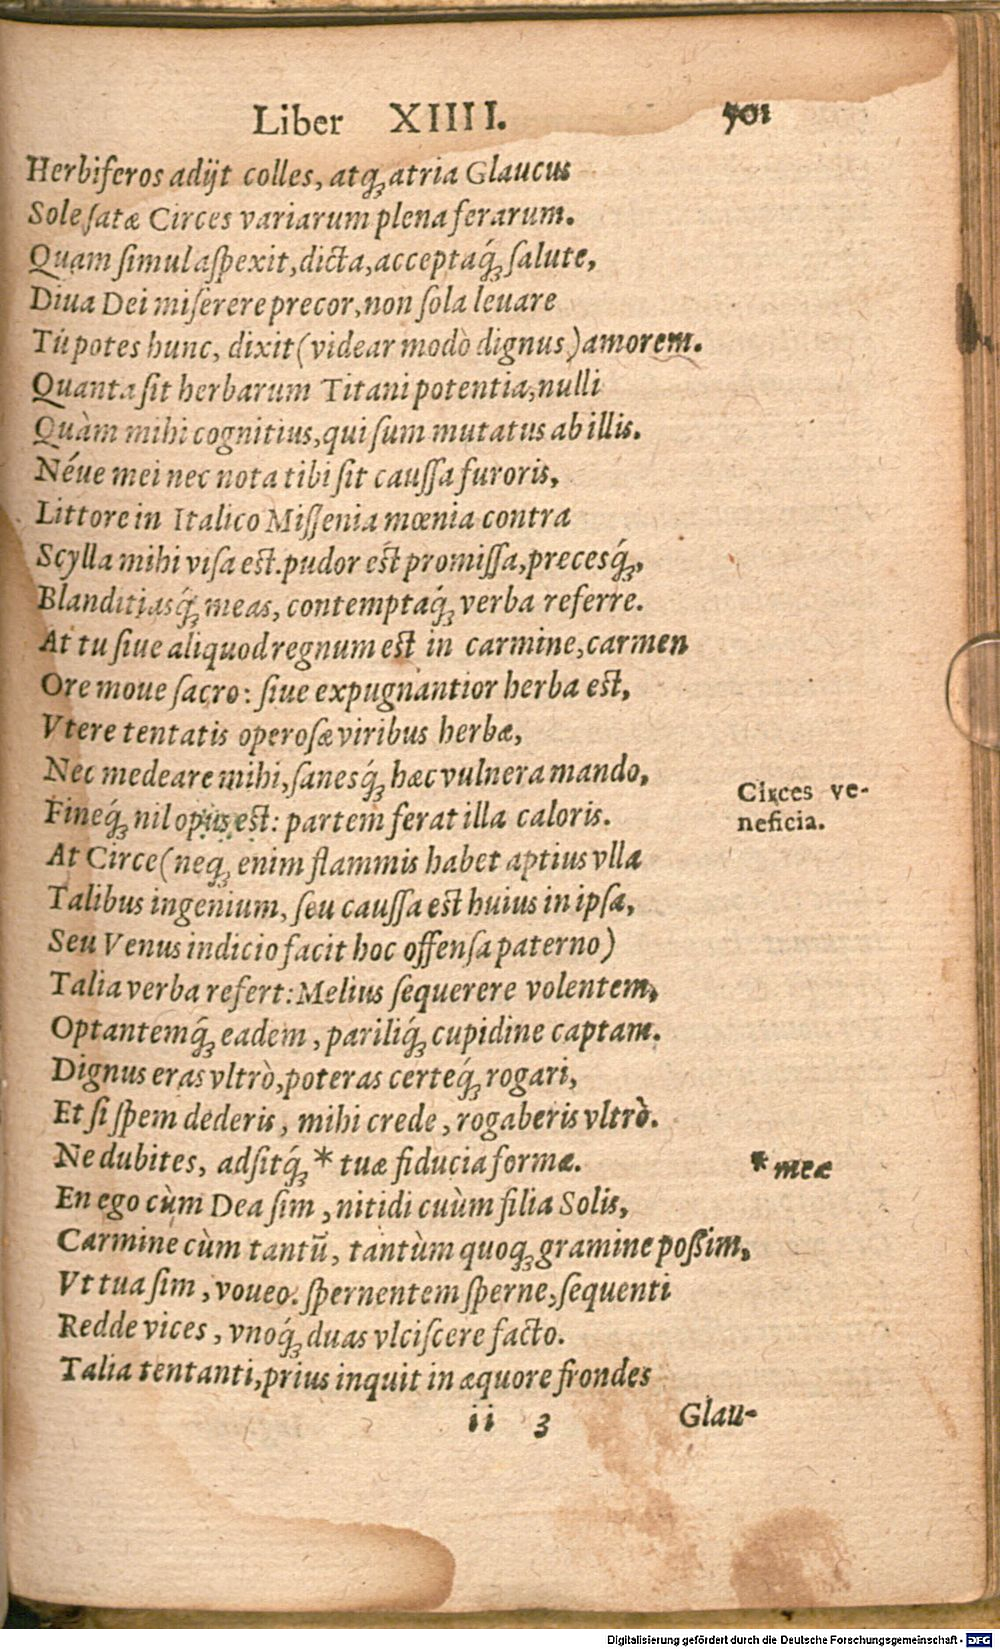 Liber XIIII. 501
Herbiferos adijt colles, atq́; atria Glaucus
Sole ſatæ Circes variarum plena ferarum.
Quam ſimul aſpexit, dicta, acceptaq́; ſalute,
Diua Dei miſerere precor, non ſola leuare
Tú potes hunc, dixit (videar modò dignus) amorem.
Quanta ſit herbarum Titani potentia, nulli
Quàm mihi cognitius, qui ſum mutatus ab illis.
Néue mei nec nota tibi ſit cauſſa furoris,
Littore in Italico Miſſenia mœnia contra
Scylla mihi viſa est. pudor ést promiſſa, precesq́;,
Blanditiasq́; meas, contemptaq́; verba referre.
At tu ſiue aliquod regnum est in carmine, carmen
Ore moue ſacro: ſiue expugnantior herba est,
Vtere tentatis operoſæ viribus herbæ,
Nec medeare mihi, ſanesq́; hæc vulnera mando,
Fineq́; nil opus est: partem ferat illa caloris.
Circes ve-
neficia.
At Circe (neq; enim flammis habet aptius vlla
Talibus ingenium, ſeu cauſſa est huius in ipſa,
Seu Venus indicio facit hoc offenſa paterno)
Talia verba refert: Melius ſequerere volentem,
Optantemq́; eadem, pariliq́; cupidine captam.
Dignus eras vltrò, poteras certeq́; rogari,
Et ſi ſpem dederis, mihi crede, rogaberis vltrò.
Ne dubites, adſitq́; * tuæ fiducia formæ.
* meæ
En ego cùm Dea ſim, nitidi cuùm filia Solis,
Carmine cùm tantū, tantùm quoq; gramine poßim,
Vt tua ſim, voueo. ſpernentem ſperne, ſequenti
Redde vices, vnoq́; duas vlciſcere facto.
Talia tentanti, prius inquit in æquore frondes
ii 3 Glau-
Digitalisierung gefördert durch die Deutsche Forschungsgemeinschaft - DFG